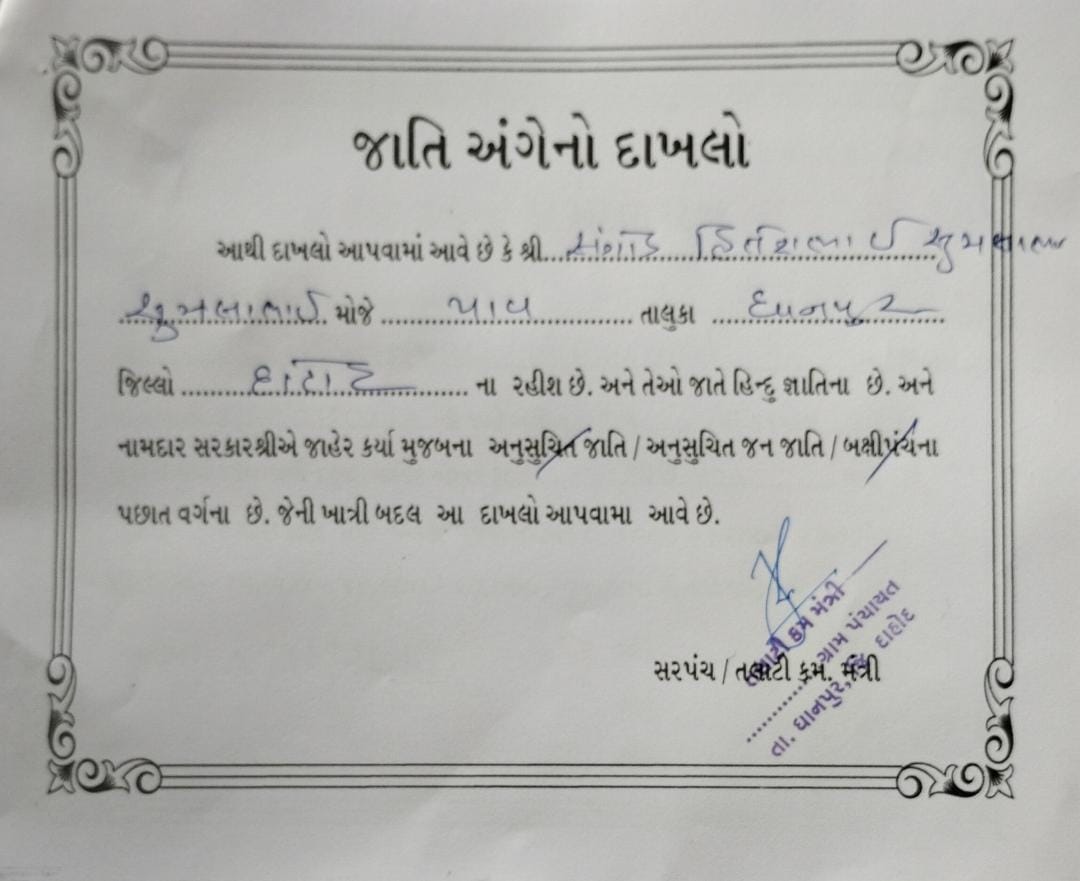 જાતિ અંગેનો દાખલો
આથી દાખલો આપવામાં આવે છે કે શ્રી... સંગાડ હિતેશભાઈ
મોજે ... પાવ ... તાલુકા ... ધાનપુર
જિલ્લો ... દાહોદ ... ના રહીશ છે. અને તેઓ જાતે હિન્દુ જ્ઞાતિના છે. અને
નામદાર સરકારશ્રીએ જાહેર કર્યા મુજબના અનુસુચિત જાતિ / અનુસુચિત જન જાતિ / બક્ષીપંચના
પછાત વર્ગના છે. જેની ખાત્રી બદલ આ દાખલો આપવામા આવે છે.
સરપંચ / તલાટી ક્રમ. મંત્રી
તલાટી કમ મંત્રી
ગ્રામ પંચાયત
તા. ધાનપુર, જિ. દાહોદ